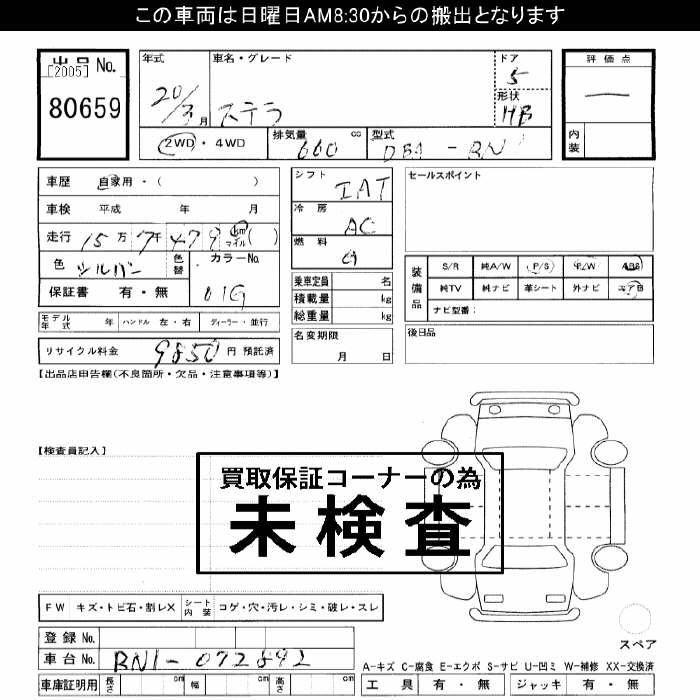 この車両は日曜日AM8:30からの搬出となります
出品 No.
[2005]
80659
年式
20/3月
車名・グレード
ステラ
ドア
5
形状
HB
評価点
内装
2WD・4WD
排気量 660 cc
型式 DBA-RN1
車歴 自家用・( )
車検 平成 年 月
走行 15万7千479 km マイル ( )
色 シルバー
色替
カラーNo.
01G
保証書 有・無
モデル年式 年 ハンドル 左・右 ディーラー・並行
リサイクル料金 9850円 預託済
シフト
IAT
冷房
AC
燃料
G
乗車定員 名
積載量 kg
総重量 kg
名変期限
月 日
セールスポイント
装備品
S/R 純A/W P/S P/W ABS
純TV 純ナビ 革シート 外ナビ エアB
ナビ型番:
後日品
【出品店申告欄(不良箇所・欠品・注意事項等)】
【検査員記入】
買取保証コーナーの為
未検査
FW キズ・トビ石・割レX シート内装 コゲ・穴・汚レ・シミ・破レ・スレ
登録No.
車台No. RN1-072892
車庫証明用 長さ cm 幅 cm 高さ cm
スペア
A-キズ C-腐食 E-エクボ S-サビ U-凹ミ W-補修 XX-交換済
工具 有・無 ジャッキ 有・無